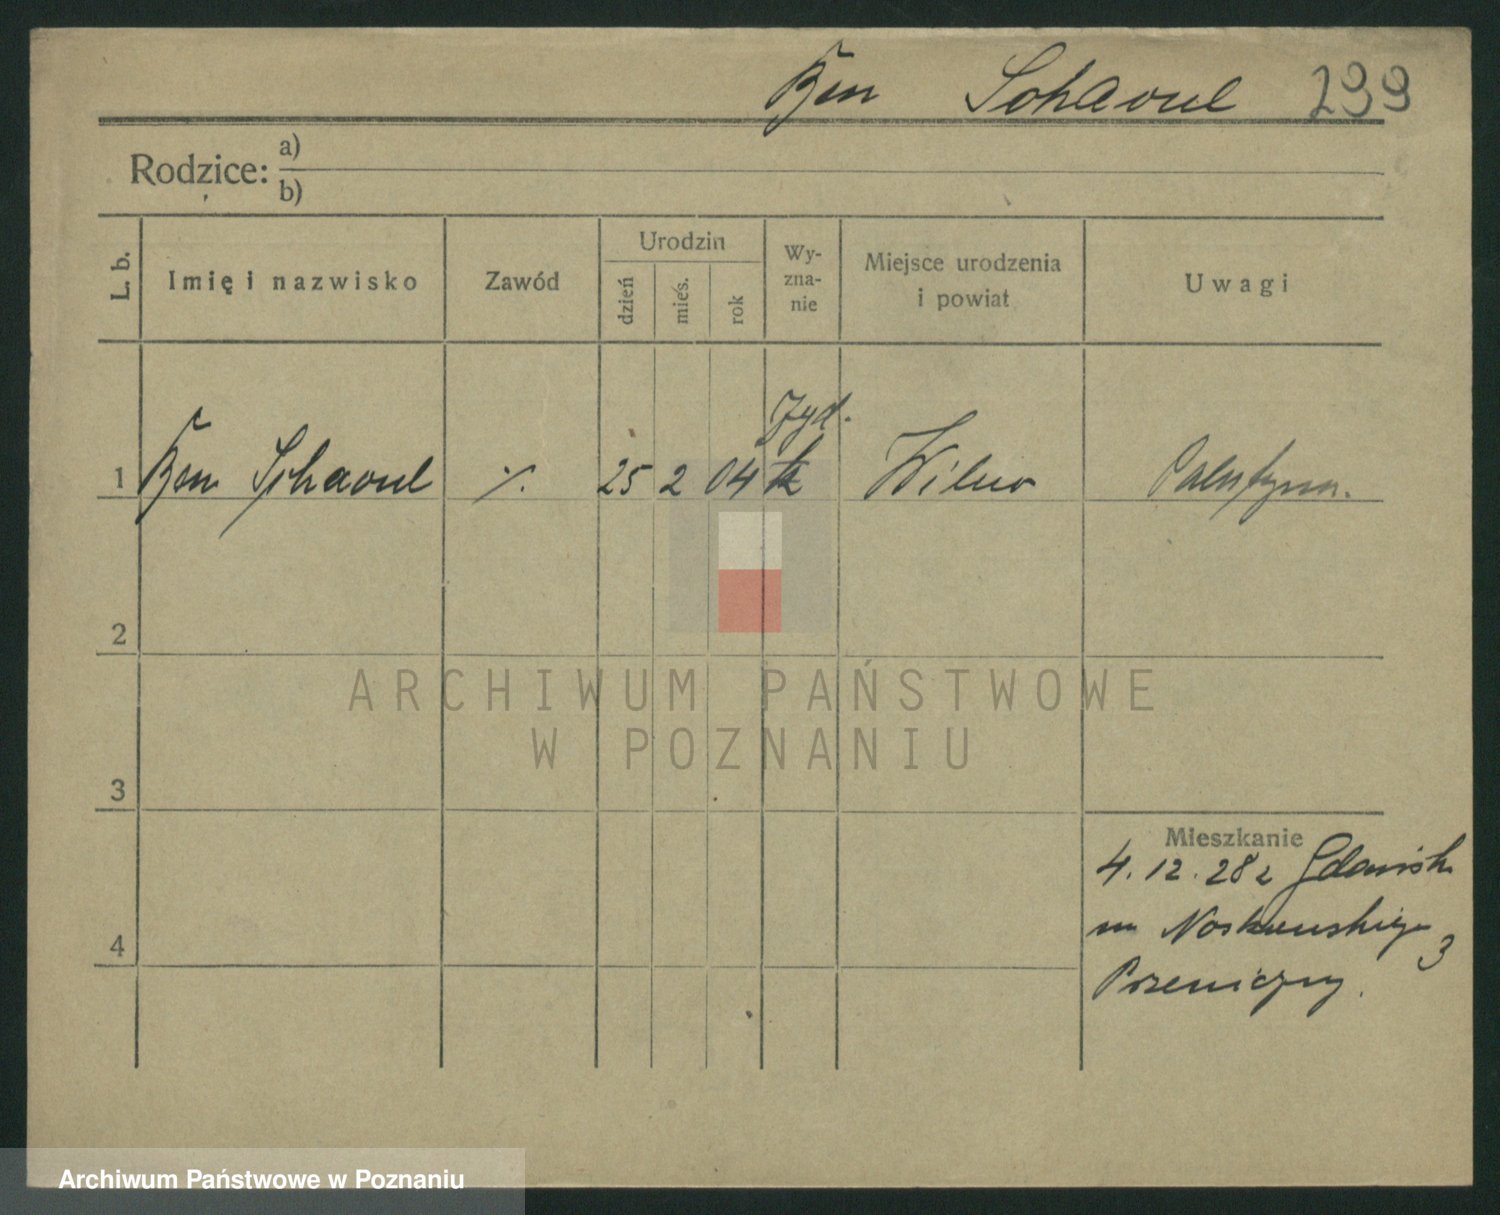 Ben Schaoul 299
Rodzice: a)
b)
L. b.
Imię i nazwisko
Zawód
Urodzin
dzień
mieś.
rok
Wy-
zna-
nie
Miejsce urodzenia
i powiat
Uwagi
Żyd.
1 Ben Schaoul % 25 2 04 Wilno Palestyna.
2
ARCHIWUM PAŃSTWOWE
W POZNANIU
3
Mieszkanie
4. 12. 28 z Gdańsk
Noskowskiego 3
4
Przeniczny.
Archiwum Państwowe w Poznaniu